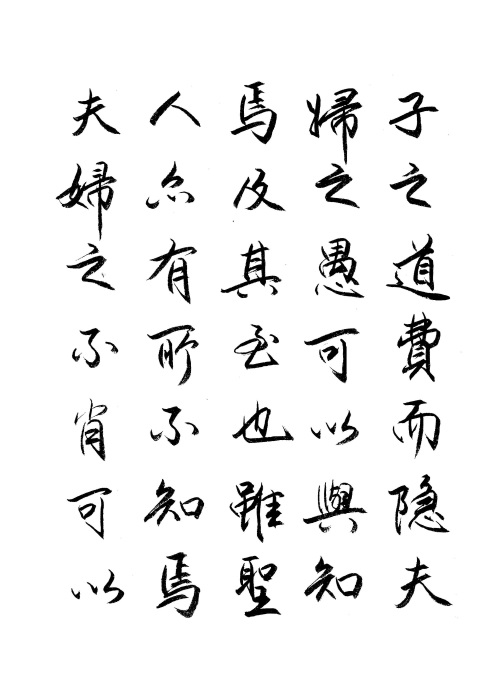 子之道費而隐夫
婦之愚可以與知
焉及其至也雖聖
人亦有所不知焉
夫婦之不肖可以